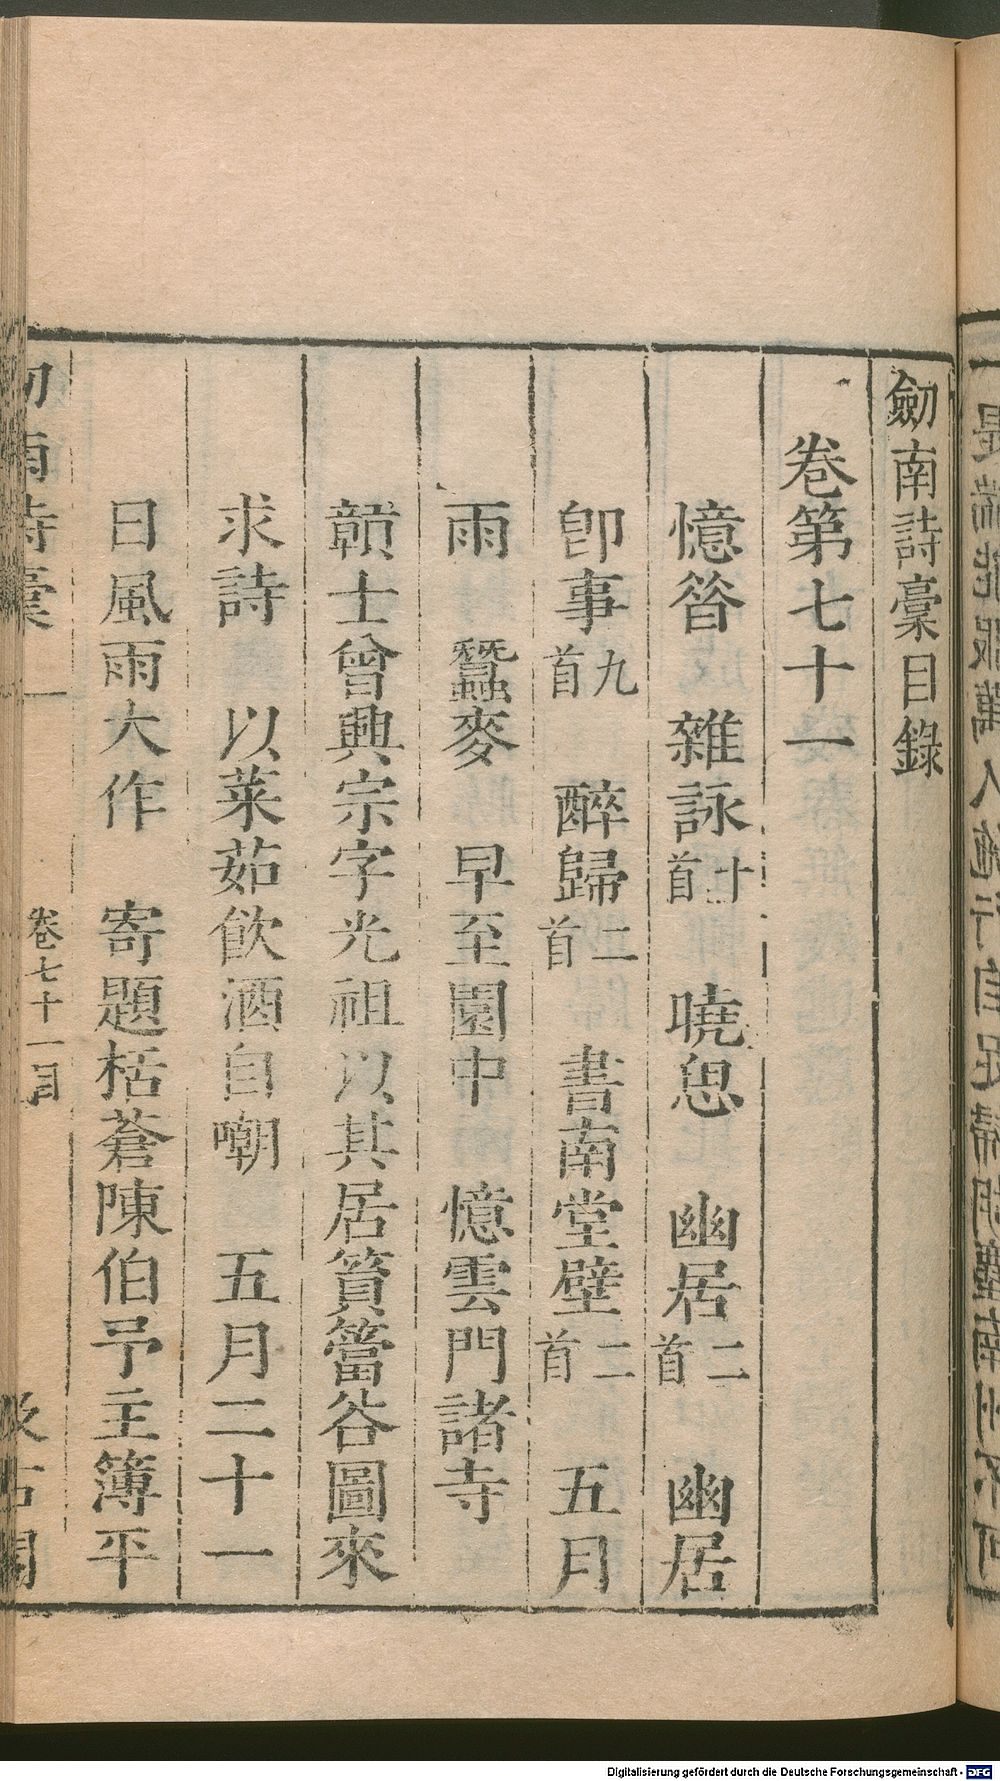 劒南詩稾目錄
卷第七十一
憶昝 雜詠十首 曉思 幽居二首 幽居
卽事九首 醉歸二首 書南堂壁二首 五月
雨 蠶麥 早至園中 憶雲門諸寺
贑士曾興宗字光祖以其居篔簹谷圖來
求詩 以菜茹飲酒自嘲 五月二十一
日風雨大作 寄題栝蒼陳伯予主簿平
卷七十一目
Digitalisierung gefördert durch die Deutsche Forschungsgemeinschaft - DFG